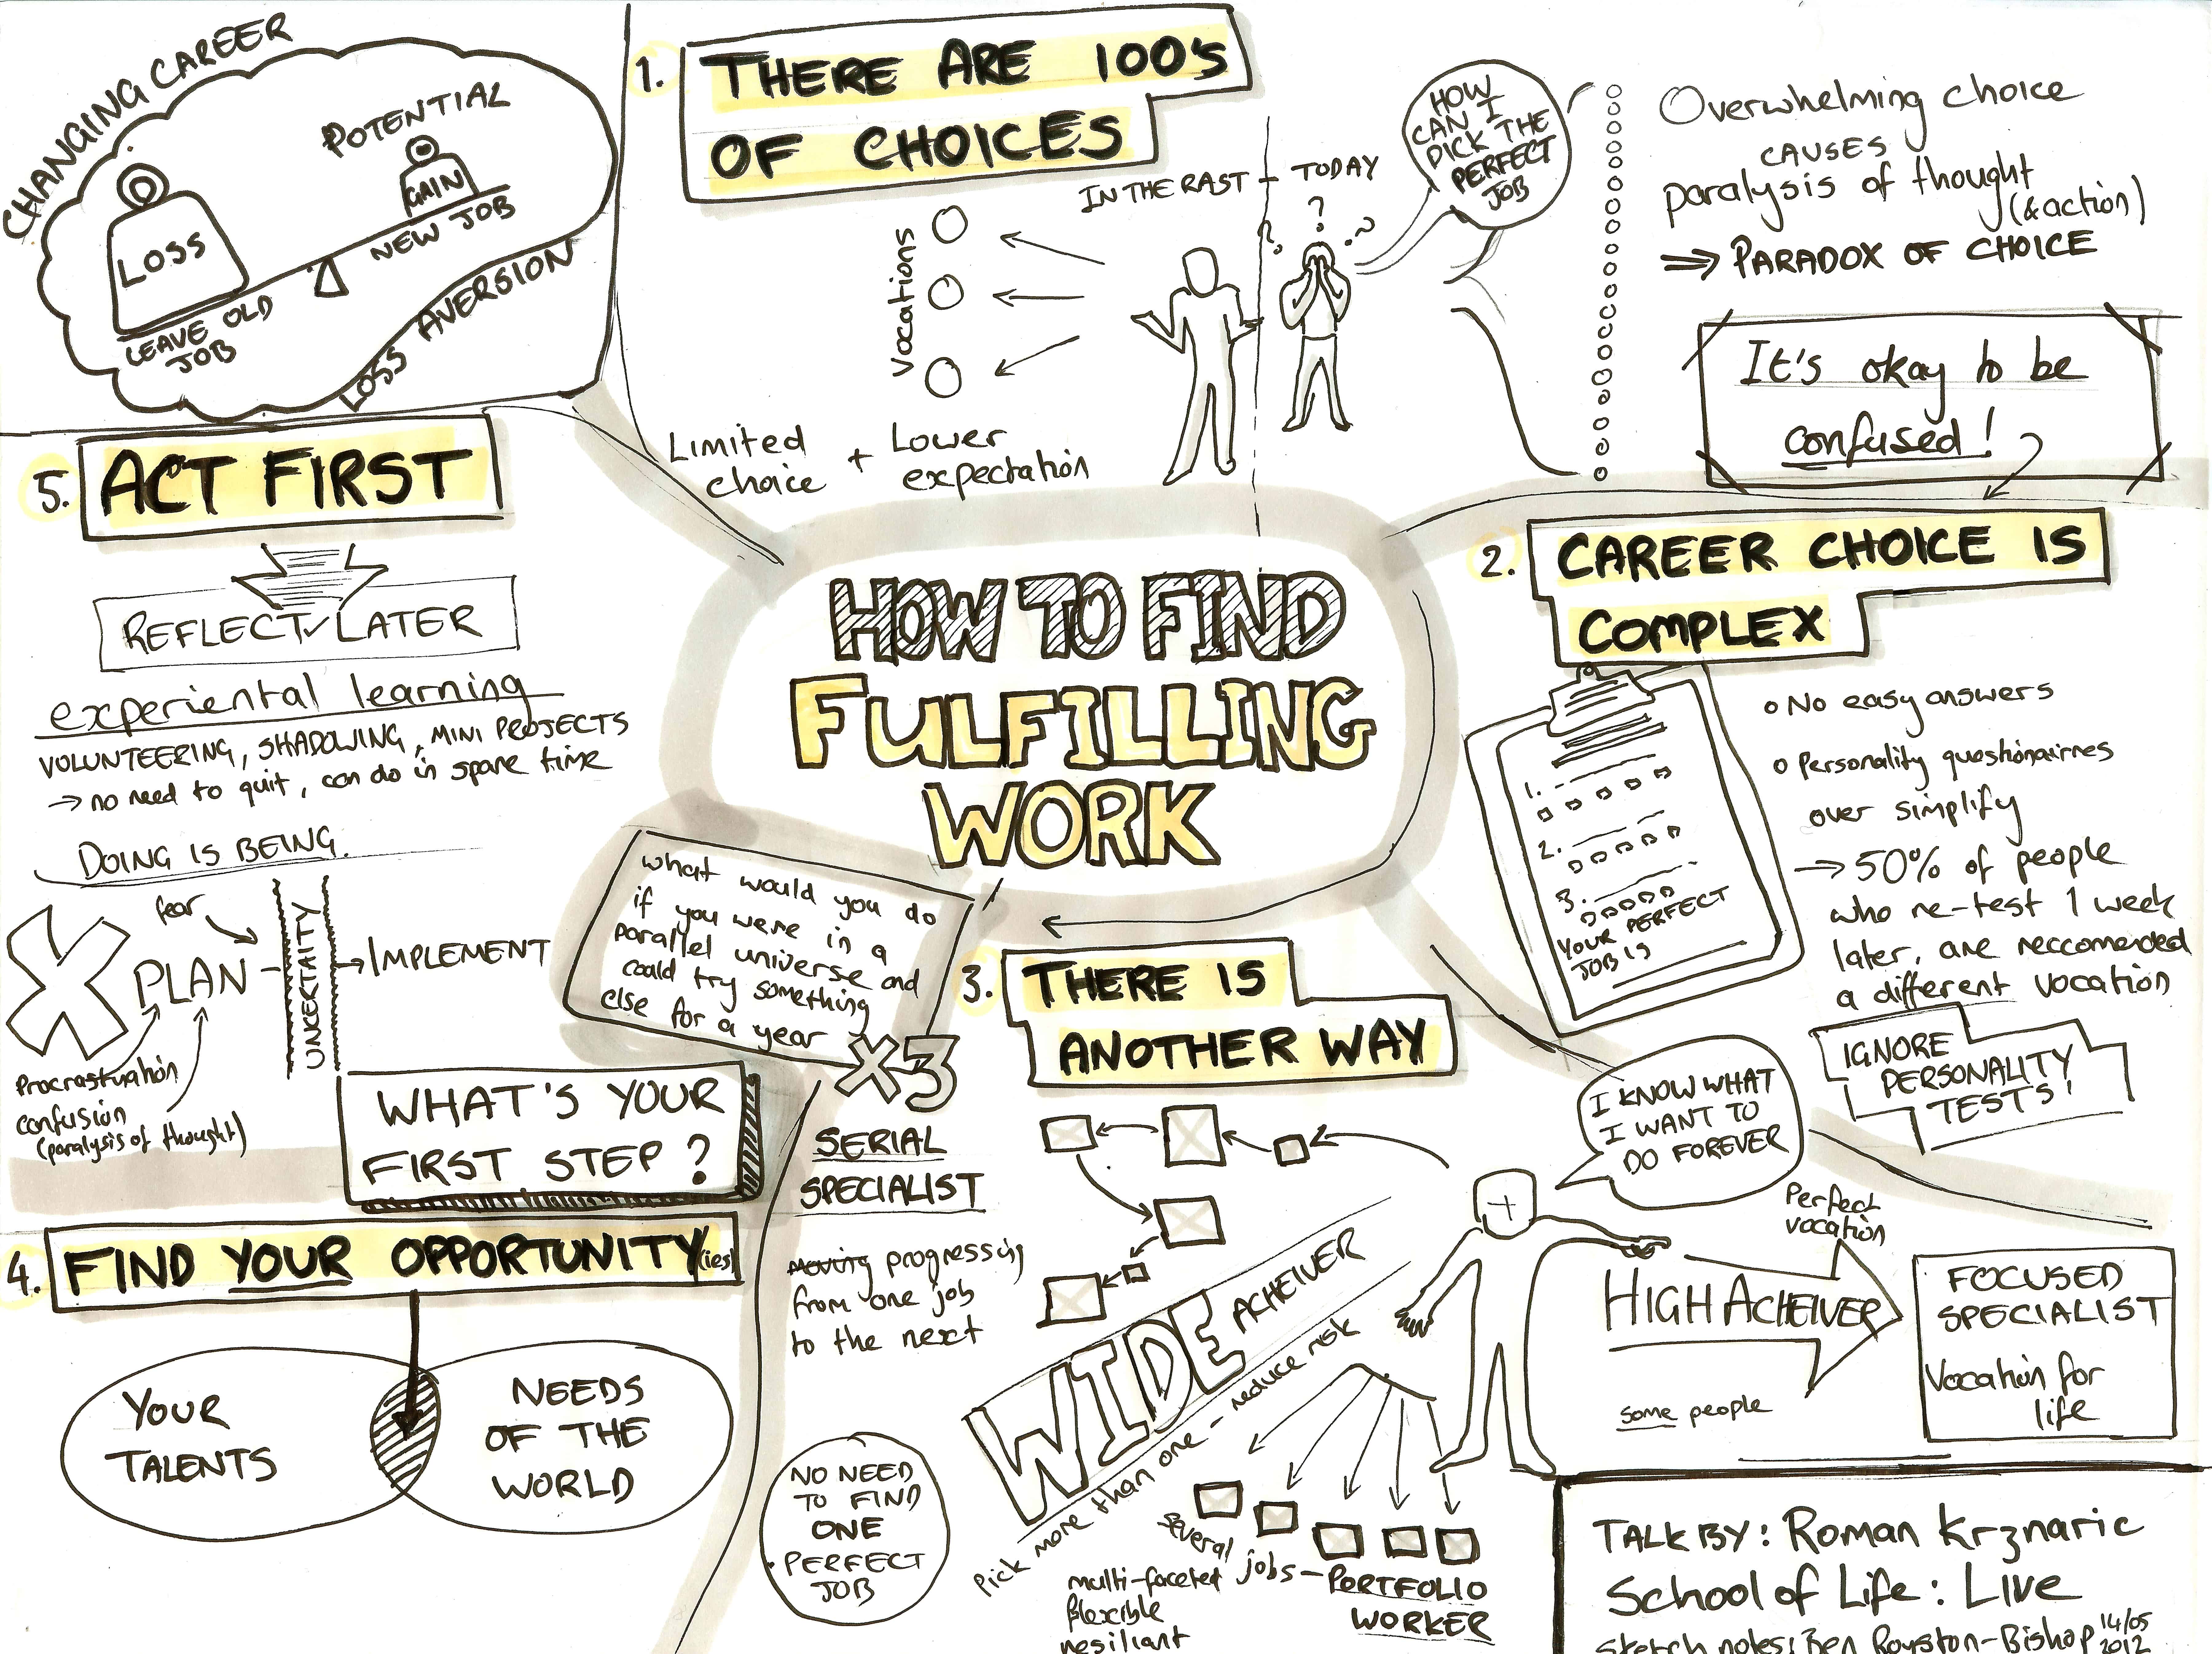 HOW TO FIND
FULFILLING
WORK
1. THERE ARE 100's
OF CHOICES
IN THE PAST
TODAY
HOW
CAN I
PICK THE
PERFECT
JOB
? ? ?
Vocations
Limited
choice
+ Lower
expectation
Overwhelming choice
CAUSES
paralysis of thought
(& action)
⇒ PARADOX OF CHOICE
It's okay to be
confused!
2. CAREER CHOICE IS
COMPLEX
1.
2.
3.
YOUR PERFECT
JOB IS
o No easy answers
o Personality questionairnes
over simplify
→ 50% of people
who re-test 1 week
later, are reccomended
a different vocation
IGNORE
PERSONALITY
TESTS!
3. THERE IS
ANOTHER WAY
I KNOW WHAT
I WANT TO
DO FOREVER
Perfect
vocation
HIGH ACHEIVER
some people
FOCUSED
SPECIALIST
Vocation for
life
SERIAL
SPECIALIST
moving progressing
from one job
to the next
WIDE ACHEIVER
Pick more than one - reduce risk
several jobs - PORTFOLIO
WORKER
multi-faceted
flexible
resiliant
NO NEED
TO FIND
ONE
PERFECT
JOB
what would you do
if you were in a
parallel universe and
could try something
else for a year
x3
4. FIND YOUR OPPORTUNITY(ies)
YOUR
TALENTS
NEEDS
OF THE
WORLD
CHANGING CAREER
POTENTIAL
GAIN
LOSS
NEW JOB
LEAVE OLD
JOB
LOSS AVERSION
5. ACT FIRST
REFLECT LATER
experiental learning
VOLUNTEERING, SHADOWING, MINI PROJECTS
→ no need to quit, can do in spare time
DOING IS BEING.
fear
X PLAN
UNCERTAITY
IMPLEMENT
Procrastination
confusion
(paralysis of thought)
WHAT'S YOUR
FIRST STEP?
TALK BY: Roman Krznaric
School of Life: Live
sketch notes: Ben Royston-Bishop 14/05
2012